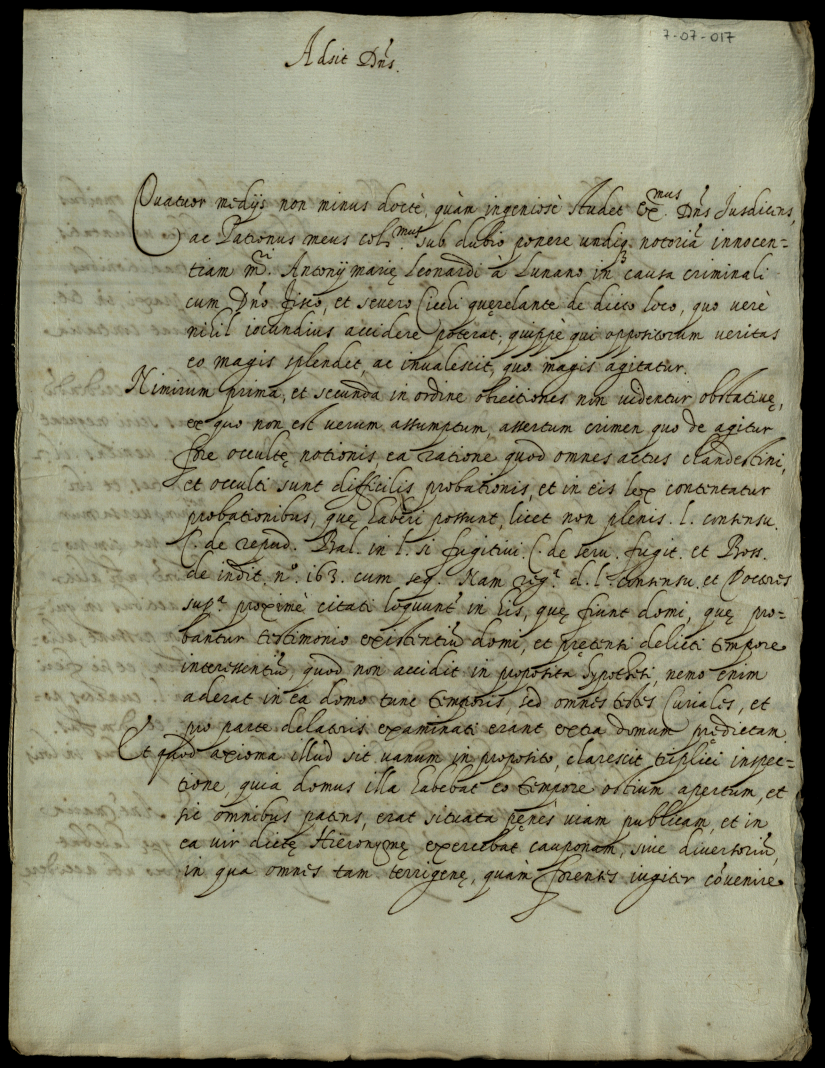 7-07-017
Adsit Dn̄s.
Quatuor medijs non minus doctè, quàm ingeniosè studet Ex.mus Dn̄s Jusdicens,
ac Patronus meus col.mus sub dubio ponere undiq notoriā innocen=
tiam m.ri Antonij marię Leonardi à Lunano in causa criminali
cum Dn̄o Fisco, et severo Cicchi quęrelante de dicto loco, quo verè
nihil iocundius accidere poterat, quippè qui oppositorum veritas
eo magis splendet, ac invalescit, quo magis agitatur.
Nimirum prima, et secunda in ordine obiectiones non videntur obstativę,
ex quo non est verum assumptum, assertum crimen quo de agitur
fore occultę notionis, ea ratione quod omnes actus clandestini,
et occulti sunt difficilis probationis, et in eis lex contentatur
probationibus, quę haberi possunt, licet non plenis. l. consensu.
C. de repud. Bal. in l. si fugitivi C. de seru. fugit. et Boss.
de indit. n.o 163. cum seq. Nam d. l. consensu. et Doctores
sup.a proximè citati loquunt.r in his, quę fiunt domi, quę pro=
bantur testimonio existentiū domi, et prętensi delicti tempore
interessentiū, quod non accidit in proposita hypothesi, nemo enim
aderat in ea domo tunc temporis, sed omnes testes Curiales, et
pro parte delatoris examinati erant extra domum prędictam
Et quod axioma illud sit vanum in proposito, clarescit triplici inspec=
tione, quia domus illa habebat eo tempore ostium apertum, et
sic omnibus patens, erat situata pęnès viam publicam, et in
ea vir dictę Hieronymę exercebat cauponam, sive diversoriū,
in qua omnes tam terrigenę, quàm forenses iugiter cōvenire